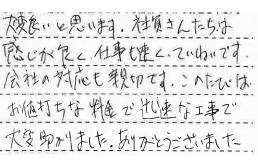 大変良いと思います。社員さんたちは
感じが良く、仕事も速く、ていねいです。
会社の対応も親切です。このたびは
お値打ちな料金で迅速な工事で
大変助かりました。ありがとうございました